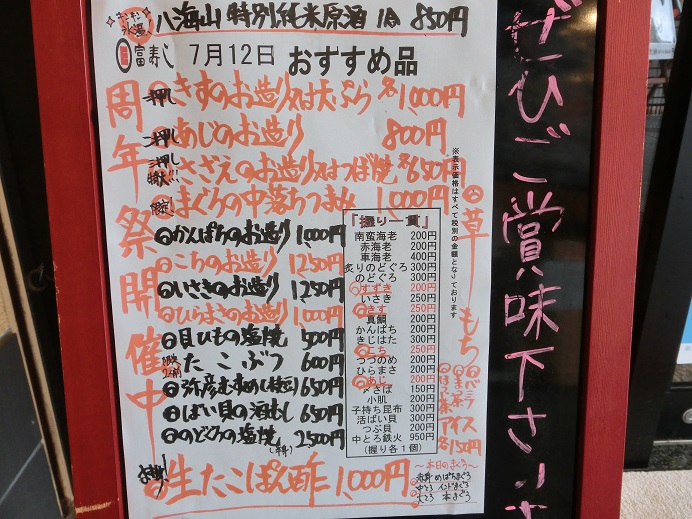 八海山 特別純米原酒 1合 850円
富寿し 7月12日 おすすめ品
周年祭開催中
一押し きすのお造り又は天ぷら 各1,000円
二押し あじのお造り 800円
三押し 特大!!! さざえのお造り又はつぼ焼 各650円
限定! まぐろの中落ちつまみ 1,000円
かんぱちのお造り 1,000円
こちのお造り 1250円
いさきのお造り 1250円
ひらまさのお造り 1,000円
貝ひもの塩焼 500円
たこぶつ 600円
弥彦むすめ 650円
ばい貝の酒むし 650円
のどぐろの塩焼 2500円
生たこぽん酢 1,000円
「握り一貫」
南蛮海老 200円
赤海老 200円
車海老 400円
炙りのどぐろ 300円
のどぐろ 300円
すずき 200円
いさき 250円
きす 200円
真鯛 200円
かんぱち 200円
きじはた 300円
こち 250円
つづのめ 200円
ひらまさ 200円
あじ 200円
〆さば 150円
小肌 200円
子持ち昆布 300円
活ばい貝 300円
つぶ貝 200円
中とろ鉄火 950円
(握り各1個)
※表示価格はすべて税別の金額となっております
草もち
バニラ
抹茶
ほうじ茶
アイス
各150円
~本日のまぐろ~
赤身 めばちまぐろ
中とろ インドまぐろ
大とろ 本まぐろ
ぜひご賞味下さいませ